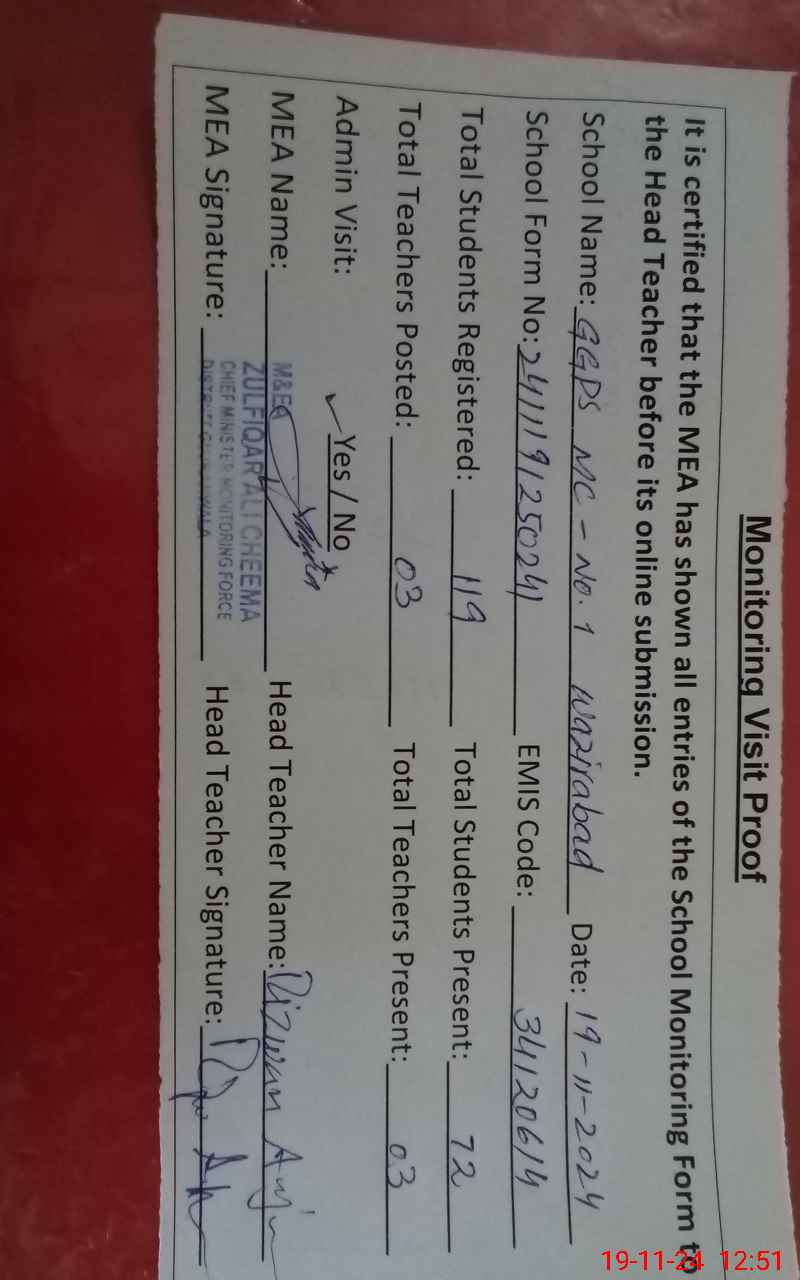 Monitoring Visit Proof
It is certified that the MEA has shown all entries of the School Monitoring Form to
the Head Teacher before its online submission.
School Name: GGPS MC - No. 1 Wazirabad Date: 19-11-2024
School Form No: 2411191250241 EMIS Code: 34120614
Total Students Registered: 119 Total Students Present: 72
Total Teachers Posted: 03 Total Teachers Present: 03
Admin Visit: ✓ Yes / No
MEA Name: Head Teacher Name: Rizwan
MEA Signature: Head Teacher Signature:
ZULFIQAR ALI CHEEMA
CHIEF MINISTER MONITORING FORCE
19-11-24 12:51